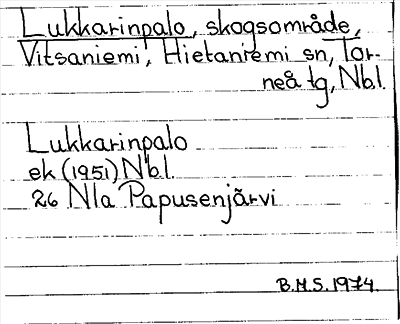 Lukkarinpalo, skogsområde,
Vitsaniemi, Hietaniemi sn, Tor-
neå tg, Nbl.
Lukkarinpalo
ek (1951) Nbl.
26 Nla Papusenjärvi
B.M.S. 1974.